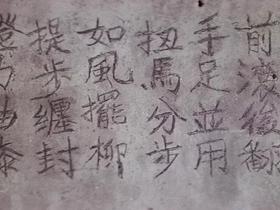 前滚後翻
手足並用
扭馬分步
如風擺柳
提步纏封